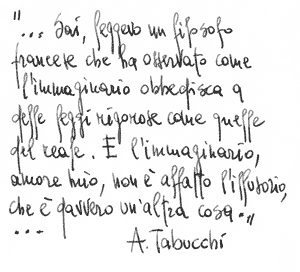 "... Sai, leggevo un filosofo
francese che ha osservato come
l'immaginario obbedisca a
delle leggi rigorose come quelle
del reale. E l'immaginario,
amore mio, non è affatto l'illusorio,
che è davvero un'altra cosa."
...
A. Tabucchi